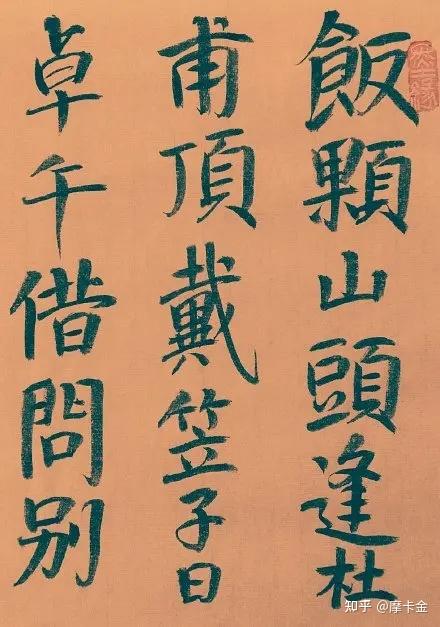 飯顆山頭逢杜
甫頂戴笠子日
卓午借問别
知乎 @摩卡金